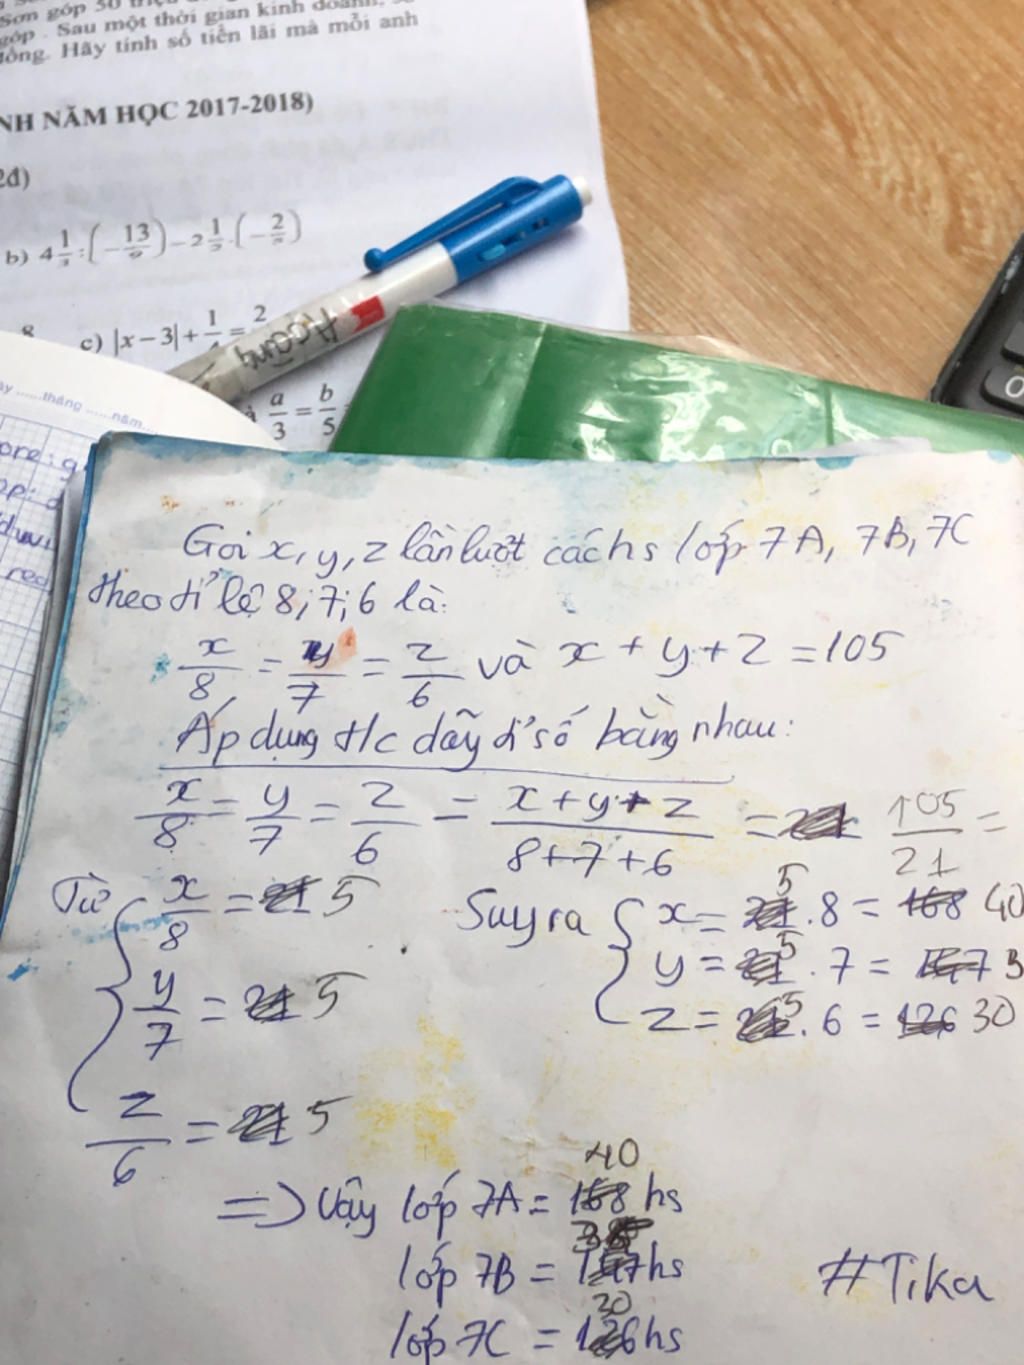 Sơn góp 50
góp . Sau một thời gian kinh doanh,
đồng. Hãy tính số tiền lãi mà mỗi anh
NH NĂM HỌC 2017-2018)
2đ)
b) 4 1/3 : (- 13/9) - 2 1/2 . (- 2/3)
8
c) |x - 3| + 1/ = 2
Hoàng
a/3 = b/5
......tháng ......năm...
Gọi x, y, z lần lượt các hs lớp 7A, 7B, 7C
theo tỉ lệ 8; 7; 6 là:
x/8 = y/7 = z/6 và x + y + z = 105
Áp dụng t/c dãy tỉ số bằng nhau:
x/8 = y/7 = z/6 = x + y + z / 8 + 7 + 6 = 105/21 =
Từ x/8 = 5 Suy ra x = 5 . 8 = 40
y/7 = 5 y = 5 . 7 = 3
z/6 = 5 z = 5 . 6 = 30
=> Vậy lớp 7A = 40 hs
lớp 7B = 35 hs
lớp 7C = 30 hs
#Tika